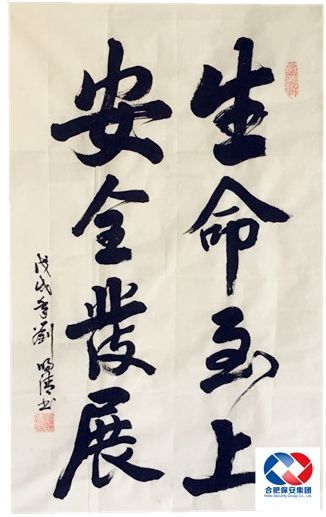 生命至上
安全發展
戊戌年劉明清書
合肥保安集团
Hefei Security Group Co., Ltd.